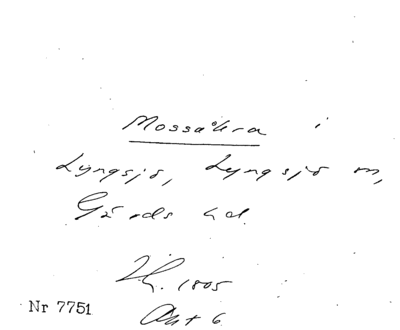 Mossåkra i
Lyngsjö, Lyngsjö sn,
Gärds hd.
1805
Akt 6.
Nr 7751